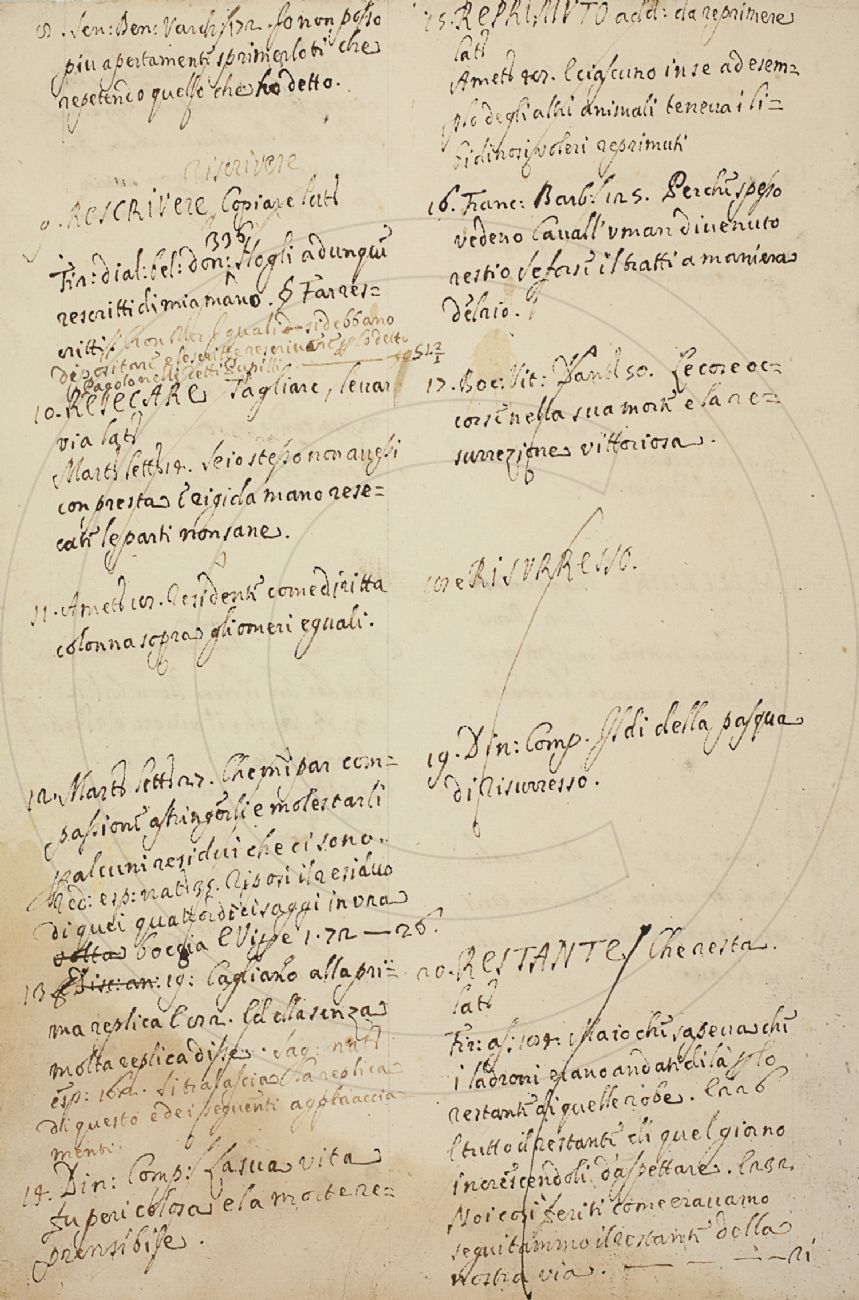 8. Sen: Ben: Varch: 5. 12. Io non posso
piu apertamente sprimerloti che
repetendo quello che ho detto.
riscrivere
9. RESCRIVERE, Copiare lat:
Fir: dial: bel: don: 336 Mogli adunque
rescritti di mia mano. § Far res=
critti.
quali si debbano
depositare
51. 2/1
10. RESECARE Tagliare, levar
via lat:
Mart: lett: 14. Se io stesso non avessi
con presta e rigida mano rese=
cate le parti non sane.
11. Amet: 101. Residente come diritta
colonna sopra gli omeri eguali.
12. Mart: lett: 27. Che mi par com=
passione astringerli e molestarli
p alcuni residui che ci sono.
Red: esp: nat: 35. Riposi il residuo
di quei quattordici saggi in una
boccia
1. 72 — 26.
13. 19: Cagliano alla pri=
ma replica l'ora. Ed ella senza
molta replica disse. Sag: nat:
esp: 162. Si tralascia la replica
di questo e dei seguenti agghiaccia
menti.
14. Din: Comp: La sua vita
fu pericolosa e la morte re=
prensibile.
15. REPRIMUTO add: da reprimere
lat:
Amet: 27. E ciascuno in se ad esem=
plo degli altri animali teneva i li=
bidinosi voleri reprimuti
16. Franc: Barb: 125. Perche spesso
vedeno Cavall' uman divenuto
restio se forse il tratti a maniera
del rio.
17. Boc: Vit: Dant: 50. Le cose oc=
corse nella sua morte e la re=
surrezione vittoriosa.
e RISURRESSO.
19. Din: Comp. Il di della pasqua
di Risurresso.
20. RESTANTE, Che resta.
lat:
Fir: as: 104. Maio che sapeva che
i ladroni erano andati di là p lo
restante di quelle robe. E 226
E tutto il restante di quel giorno
increscendoli d'aspettare. E 232.
Noi così feriti come eravamo
seguitammo il restante della
nostra via. — 21